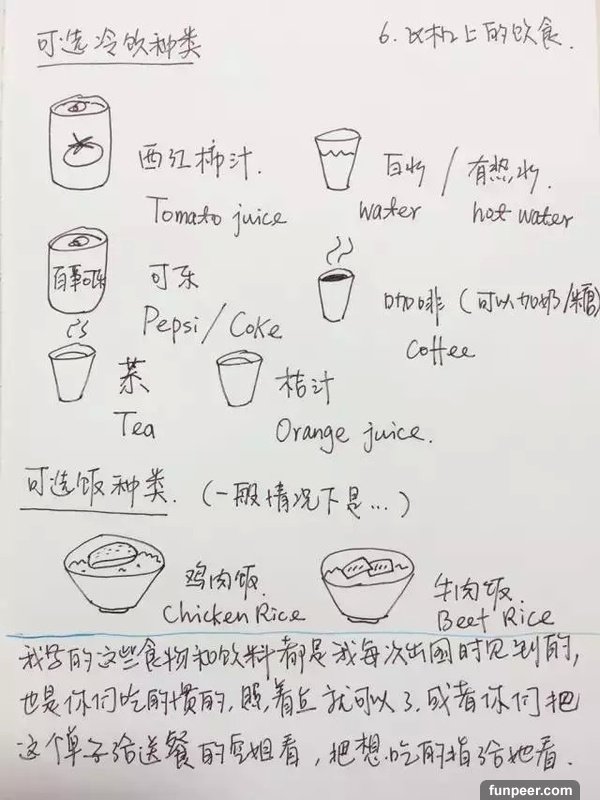 可选冷饮种类
6. 飞机上的饮食.
西红柿汁.
Tomato juice
白水 / 有热水.
water hot water
百事可乐
可乐
Pepsi/Coke
咖啡（可以加奶/糖）
Coffee
茶
Tea
桔汁
Orange juice.
可选饭种类.（一般情况下是...）
鸡肉饭.
Chicken Rice
牛肉饭.
Beef Rice
我写的这些食物和饮料都是我每次出国时见到的,
也是你们吃的惯的, 照着点就可以了. 或者你们把
这个单子给送餐的空姐看, 把想吃的指给她看.
funpeer.com